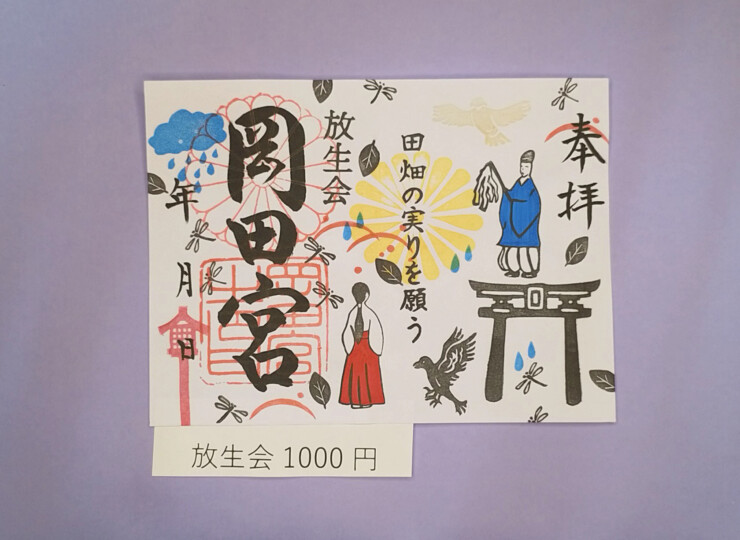 奉拝
田畑の実りを願う
放生会
岡田宮
年 月 日
放生会 1000 円